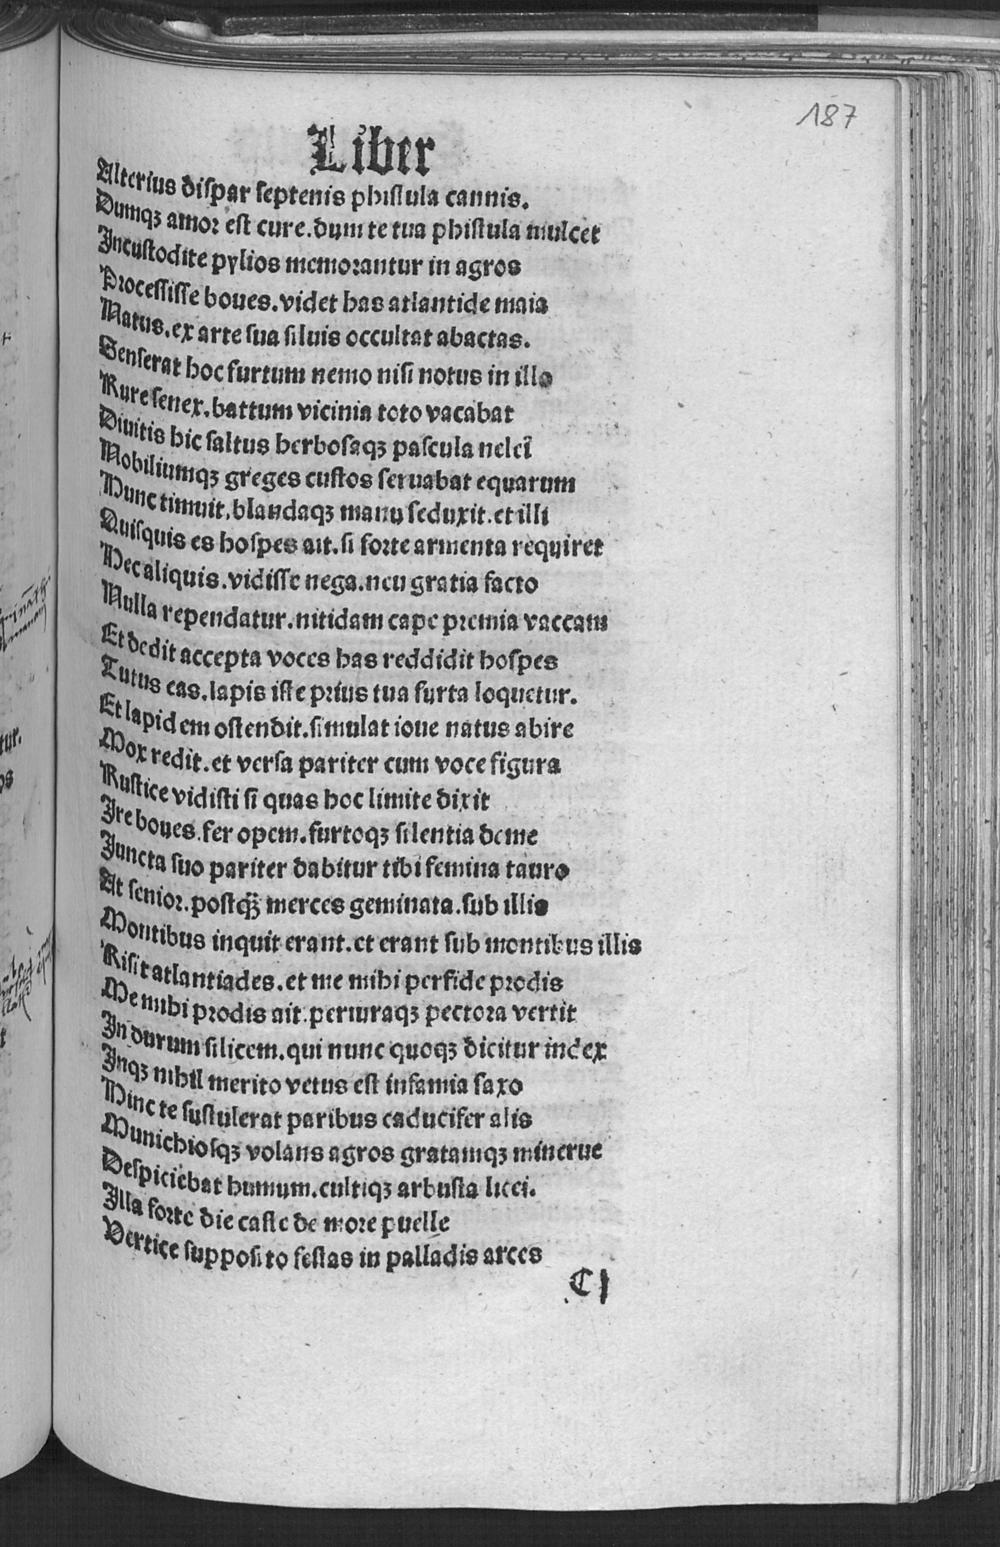 187
Liber
Alterius dispar septenis phistula cannis.
Dumqꝫ amor est cure. dum te tua phistula mulcet
Incustodite pylios memorantur in agros
Processisse boues. videt has atlantide maia
Natus. ex arte sua siluis occultat abactas.
Senserat hoc furtum nemo nisi notus in illo
Rure senex. battum vicinia toto vacabat
Diuitis hic saltus herbosaqꝫ pascula nelei
Nobiliumqꝫ greges custos seruabat equarum
Hunc timuit, blandaqꝫ manu seduxit. et illi
Quisquis es hospes ait. si forte armenta requiret
Hec aliquis. vidisse nega. neu gratia facto
Nulla rependatur. nitidam cape premia vaccam
Et dedit accepta voces has reddidit hospes
Tutus eas. lapis iste prius tua furta loquetur.
Et lapidem ostendit. simulat ioue natus abire
Mox redit. et versa pariter cum voce figura
Rustice vidisti si quas hoc limite dixit
Ire boues. fer opem. furtoqꝫ silentia deme
Iuncta suo pariter dabitur tibi femina tauro
At senior. postqꝫ̃ merces geminata. sub illis
Montibus inquit erant. et erant sub montibus illis
Risit atlantiades. et me mihi perfide prodis
Me mihi prodis ait. periuraqꝫ pectora vertit
In durum silicem. qui nunc quoqꝫ dicitur index
Inqꝫ nihil merito vetus est infamia saxo
Hinc te sustulerat paribus caducifer alis
Munichiosqꝫ volans agros gratamqꝫ minerue
Despiciebat humum. cultiqꝫ arbusta licei.
Illa forte die caste de more puelle
Vertice supposito festas in palladis arces
C i